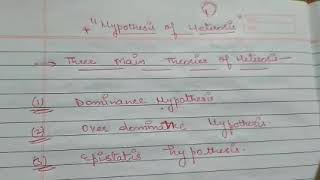 ①
* "Hypothesis of Heterosis"
→ Three Main Theories of Heterosis -
(1) Dominance Hypothesis.
(2) Over dominance Hypothesis.
(3) Epistatis hypothesis.